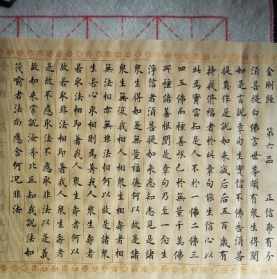 金剛 六品 正信希有分
須菩提白佛言世尊頗有眾生得聞
如是言說章句生實信不佛告須菩
提莫作是說如來滅後後五百歲有
持戒修福者於此章句能生信心以
此為實當知是人不於一佛二佛三
四五佛而種善根已於無量千萬佛
所種諸善根聞是章句乃至一念生
淨信者須菩提如來悉知悉見是諸
眾生得如是無量福德何以故是諸
眾生無復我相人相眾生相壽者相
無法相亦無非法相何以故是諸眾
生若心取相則為著我人眾生壽者
若取法相即著我人眾生壽者何以
故若取非法相即著我人眾生壽者
是故不應取法不應取非法以是義
故如來常說汝等比丘知我說法如
筏喻者法尚應捨何況非法